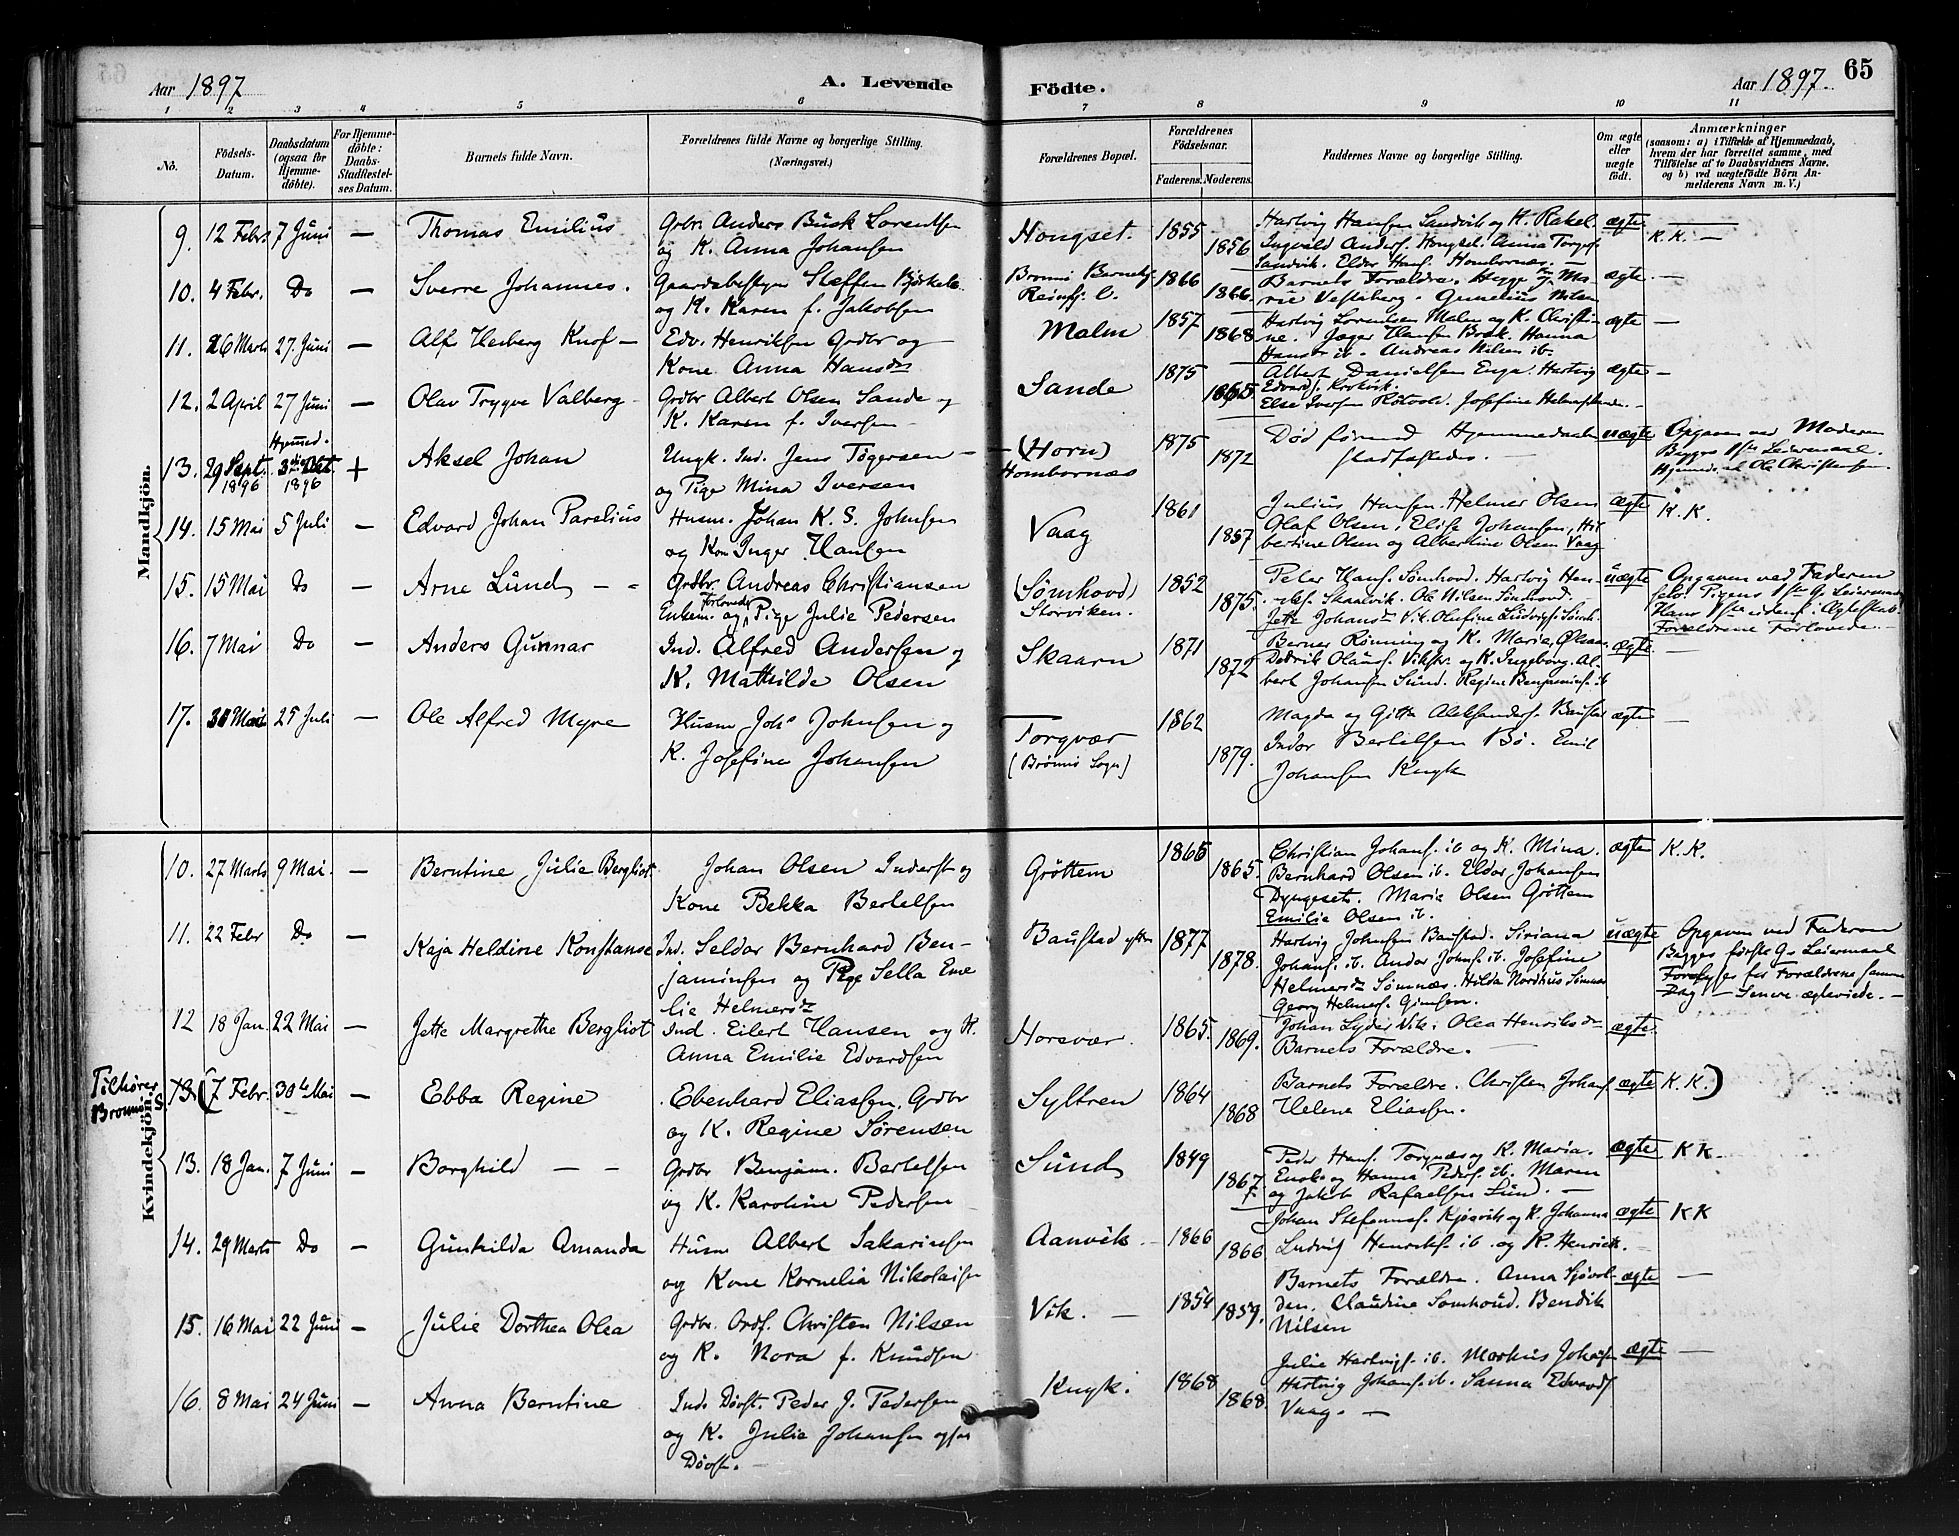 Aar 1897
A. Levende
Födte.
Aar 1897.
65
1 2 3 4 5 6 7 8 9 10 11
No.
Födsels-Datum.
Daabsdatum (ogsaa for Hjemme-döbte).
For Hjemme-döbte: Daabs-Stadfæstel-ses Datum.
Barnets fulde Navn.
Forældrenes fulde Navne og borgerlige Stilling. (Næringsvei.)
Forældrenes Bopæl.
Forældrenes Födselsaar.
Faderens. Moderens.
Faddernes Navne og borgerlige Stilling.
Om ægte eller uægte födt.
Anmærkninger
(saasom: a) i Tilfælde af Hjemmedaab, hvem der har forrettet samme, med Tilföielse af to Daabsvidners Navne, og b) ved uægtefödte Börn An-melderens Navn m. V.)
Mandkjön.
9. 12 Febr. 7 Juni — Thomas Emilius
Grbr. Anders Busk Lorentsen
og K. Anna Johansen
Hongset. 1855 1856
Hartvig Hansen Sandvik og K. Rakel
Ingvald Anders. Hongset. Anna Torgers.
Sandvik. Eldor Hans. Hombornæs. —
ægte K. K. —
10. 4 Febr. Do — Sverre Johannes.
Gaardsbestyrer Steffen Bjørkels.
og K. Karen f. Jakobsen
Brønnø Barnehj.
1866 1866.
Barnets Forældre. Hegge og Ma-
rie Vesteberg. Gunelius Nilsen
ægte —
11. 26 Marts 27. Juni — Alf Herberg Knof —
Edv. Henriksen Grdbr og —
Kone Anna Hansdr
Malm 1857 1868
Hartvig Lorentsen Malm og K. Christi-
ne. Jæger Hansen Brok. Hanna
Hansdr ib. Andreas Nilsen ib.
ægte —
12. 2 April 27 Juni — Olav Trygve Valberg —
Grdbr Albert Olsen Sande og
K. Karen f. Iversen —
Sande 1875 1865
Albert Danielsen Enga. Hartvig
Edvards. Krokvik.
Else Iversen
ægte —
13. 29 Sept. 1896 Hjemmed. 3die Okt 1896 + Aksel Johan
Ungk. Ind. Jens Tögersen —
og Pige Mina Iversen
(Horn)
Hombornæs 1875 1872
Död förend Hjemmedaaben
stadfæstedes. —
uægte
Opgaven ved Moderen
Begges 1ste Leiermaal.
Hjemmed. ved Ole Christiansen
14. 15 Mai 5 Juli — Edvard Johan Parelius
Husm. Johan K. S. Johnsen
og Kon Inger Hansen
Vaag 1861 1857
Julius Hansen. Helmer Olsen
Olaf Olsen. Elise Johansen, Hil-
bertine Olsen og Albertine Olsen Vaag
ægte K. K.
15. 15 Mai Do — Arne Lund — —
Grdbr Andreas Christiansen
Enkem. og Forlovede Pige Julie Pedersen
(Sömhovd)
Storviken. 1852 1875.
Peter Hans. Sömhovd. Hartvig Hen-
riks. Skaalvik. Ole Nilsen Sömhovd.
Jette Johansdr Vik. Olufine Ludvigs. Sömh.
uægte
Opgaven ved Faderen
selv. Pigens 1ste G. Leiermaal
Hans 1ste udenf. Ægteskab.
Forældrene Forlovede. —
16. 7 Mai Do — Anders Gunnar
Ind. Alfred Andersen og
K. Mathilde Olsen
Skaarn 1871 1872
Berner Rönning og K. Maria Olsen
Didrik Olaus. Vikstr. og K. Ingeborg. Al-
bert Johansen Sund. Regine Benjamins. ib
ægte —
17. 30 Mai 25 Juli — Ole Alfred Myre
Husm Johs Johnsen og
K. Josefine Johansen
Torgvær
(Brönnö Sogn) 1862 1879.
Magda og Gitta Aleksanders. Baustad
Indor Bertelsen Bö. Emil
Johansen Knyk
ægte —
Kvindekjön.
10. 27 Marts 9 Mai. — Berntine Julie Bergliot.
Johan Olsen Inderst og
Kone Bekka Bertelsen
Gröttem 1865 1865.
Christian Johans. ib og K. Mina.
Bernhard Olsen ib. Eldor Johansen
Dyngeset. Maria Olsen Gröttem
Emilie Olsen ib.
ægte K. K.
11. 22 Febr Do — Kaja Heldine Konstanse
Ind. Seldar Bernhard Ben-
jaminsen og Pige Sella Eme
lie Helmersdr
Baustad 1877 1878.
Hartvig Johnsen Baustad. Siriana
Johans. ib. Andor Johns. ib. Josefine
Helmersdr Sömnæs. Hilda Nordhus Sömnæs
Georg Helmers. Gimsen.
uægte
Opgaven ved Faderen
Begges første G. Leiermaal
for Forældrene samme
Dag — Senere ægteviede. —
12 18 Jan. 22 Mai — Jette Margrethe Bergliot
Ind. Eilert Hansen og K.
Anna Emilie Edvardsen
Horsvær. 1865. 1869.
Johan Lyder Vik. Olea Henriksdr
Barnets Forældre. —
ægte.
Tilhører
Brönnö S.
13. (7 Febr. 30te Mai — Ebba Regine
Ebenhard Eliassen. Grdbr
og K. Regine Sörensen
Syltren 1864 1868
Barnets Forældre. Christen Johans.
Helena Eliassen.
ægte K. K.)
13. 18 Jan. 7 Juni — Borghild — —
Grdbr Benjam. Bertelsen
og K. Karoline Pedersen
Sund 1849 1867
Peder Hans. Torgnæs og K. Maria.
og Hanna Peders. ib. Maren
og Jakob Rafaelsen Sund. —
ægte K K.
14. 29 Marts Do — Gunhilda Amanda
Husm Albert Sakariasen
og Kone Kornelia Nikolaisen
Aanvik. — 1866 1866
Johan Steffens. Kjösvik og K. Johanna
Ludvig Henriks. ib. og K. Henrich. —
ægte K K
15. 16 Mai 22 Juni — Julie Dorthea Olea
Grdbr. Ordf. Christen Nilsen
og K. Nora f. Knudsen
Vik. — 1854 1859.
Barnets Forældre. Anna Sjövol-
den. Claudine Somhoud. Bendik
Nilsen
ægte —
16. 8 Mai 24 Juni — Anna Berntine
Ind. Døvst. Peder J. Pedersen
og K. Julie Johansen ogsaa
Døvst. —
Knyk. 1868 1868.
Julie Hartvigs. ib. Markus Johans
Hartvig Johans. ib. Sanna Edvards
Vaag. —
ægte —